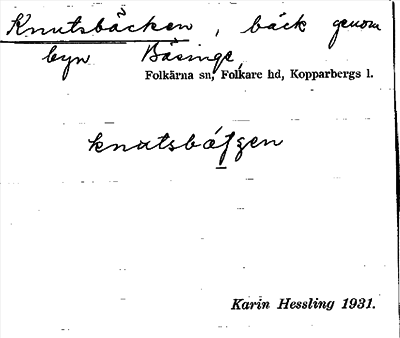 Knutsbäcken, bäck genom
byn Bäsinge,
Folkärna sn, Folkare hd, Kopparbergs l.
knutsbáʃ̱gen
Karin Hessling 1931.